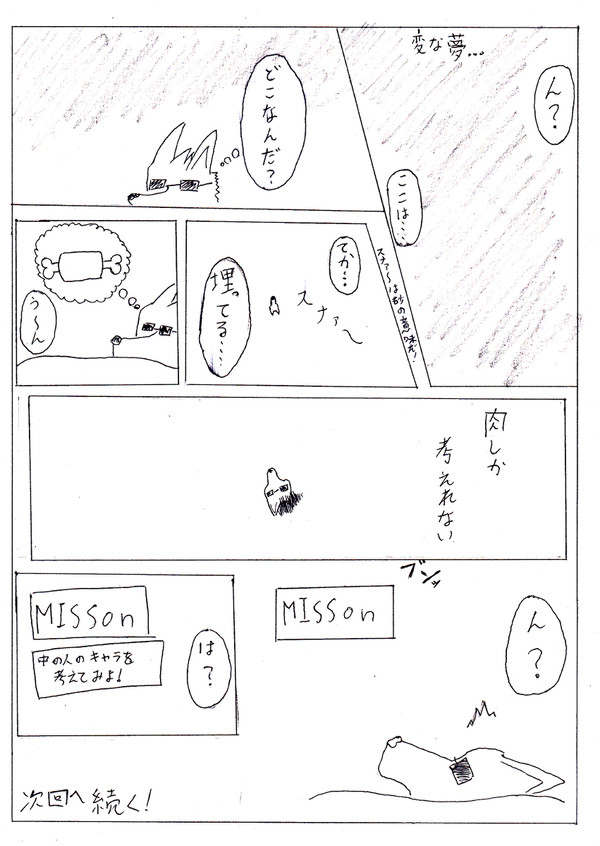 変な夢…
ん?
ここは…
どこなんだ?
スナァ〜は砂の意味だ!
てか…
スナァ〜
埋ってる…
う〜ん
肉しか
考えれない
ブンッ
ん?
MISSon
MISSon
中の人のキャラを
考えてみよ!
は?
次回へ続く!